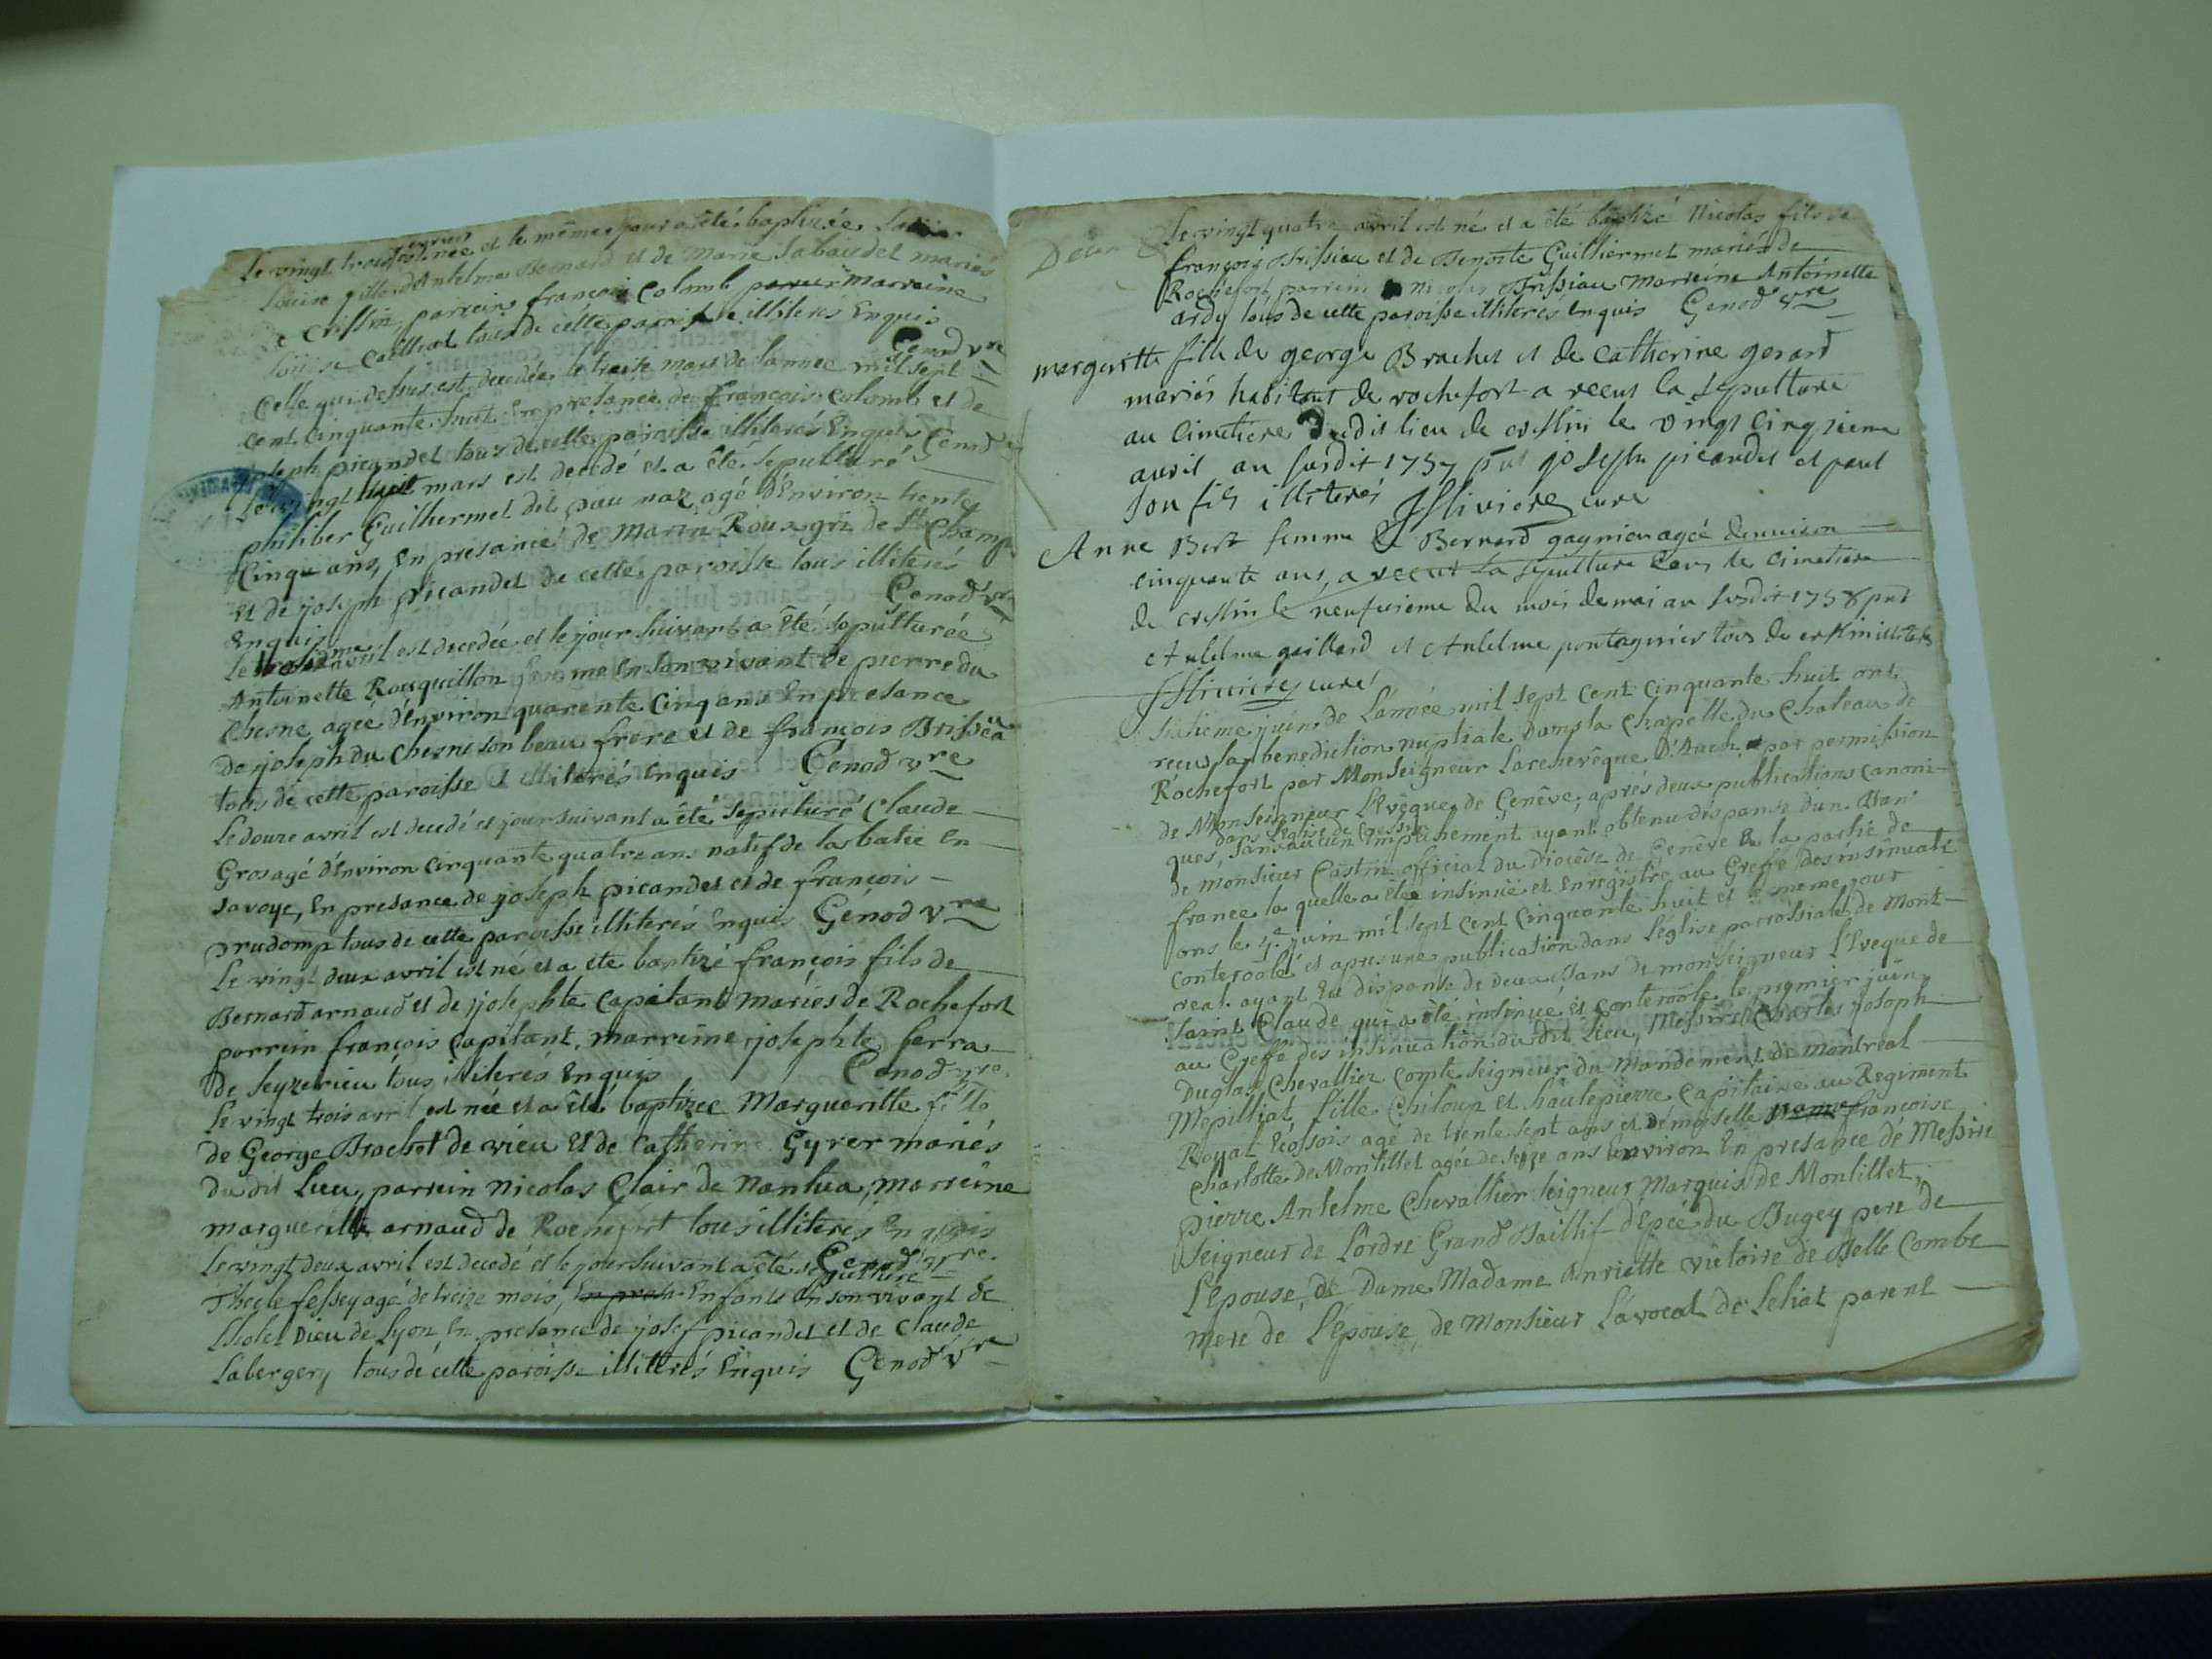 Le vingt trois est née et le même jour a été baptizée
Louise fille d'Antelme Bernard et de Marie Sabaudet mariés
Criffin, parrein françois Colomb marraine
Louise tous de cette paroisse illiterés Enquis
Genod vre
Celle qui dessus est decedée le treize mars de lannée mil sept
cent cinquante huit En presance de françois Colomb et de
joseph picandet tous de cette paroisse illiterés Enquis Genod
Le vingt huit mars est decedé et a été sepulturé
philiber Guilhermet dit pau naz agé d'Environ trente
Cinq ans, En presance de Martin Roux grz de St Champ
et de joseph picandet de cette paroisse tous illiterés
Enquis Genod vre
Le avril est decedée et le jour suivant a été sepulturée
Antoinette Rouquillon femme En son vivant de pierre du
Chesne agée d'Environ quarente Cinq ans En presance
de joseph du Chesne son beau frere et de francois Brissea
tous de cette paroisse illiterés Enquis Genod vre
Le douze avril est decedé et jour suivant a été sepulturé Claude
Gros agé d'Environ Cinquante quatre ans natif de la batie En
Savoye, En presance de joseph picandet et de françois
prudomp tous de cette paroisse illiterés Enquis Genod vre
Le vingt deux avril est né et a été baptizé françois fils de
Bernard arnaud et de josephte Capitant mariés de Rochefort
parrein françois Capitant, marreine josephte ferra
de seyzerieu tous illiterés Enquis Genod vre
Le vingt trois avril est née et a été baptizée Margueritte fille
de George Brachet de vieu et de Catherine Gyrer mariés
du dit Lieu, parrein Nicolas Clair de Nantua, marreine
margueritte arnaud de Rochefort tous illiterés Enquis
Genod vre
Le vingt deux avril est decedé et le jour suivant a été sepulturé
Thecle fessey agé de treize mois, Enfant En son vivant de
Lhotel Dieu de Lyon En presance de josef picandet et de Claude
Labergery tous de cette paroisse illiterés Enquis Genod vre
Le vingt quatre avril est né et a été baptizé Nicolas fils de
françois Brissiau et de Benoite Guilliermet mariés de
Rochefort, parrein nicolas Brissiau Marreine Antoinette
ardy tous de cette paroisse illiterés Enquis Genod vre
margueritte fille de george Brachet et de catherine gerard
mariés habitant de rochefort a recut la sepulture
au cimetiere dudit lieu de cressin le vingt cinqieme
avril an susdit 1757 pnt joseph picandet et paul
son fils illiterés curé
Anne Bert femme de Bernard gagnieu agée denviron
cinquante ans, a recut la sepulture dans le cimetiere
de cressin le neufvieme du mois de mai an susdit 1758 pnt
Antelme gaillard et Antelme pontagnier tous de
curé
Sisième juin de L'année mil sept cent cinquante huit ont
recus la benediction nuptiale dans la chapelle du chateau de
Rochefort par Monseigneur Larchevêque D'Auch, par permission
de Monseigneur L'Evêque de Genêve, aprés deux publications canoni-
dans l'église de Cressin
ques, sans aucun Empechement ayant obtenu dispanse d'un Ban
de monsieur Castin official du diocêse de Genêve de la partie de
france la quelle a été insinuée et Enregistré au Greffe des insinuati-
ons le 4e juin mil sept cent cinquante huit et le meme jour
conteroolé et apres une publication dans l'église parroissiale de Mont-
real. ayant Eu dispanse de deux Bans de monseigneur L'Eveque de
Saint Claude qui a été insinué et conteroolé le premier juin
au Greffe des insinuation du dit Lieu, Messire Charles joseph
Duglas Chevallier comte seigneur du mandement de montreal
Mepilliat, fille Chiloup et hautepierre Capitaine au Regiment
Royal Ecossois agé de trente sept ans et Demoiselle françoise
Charlotte de Montillet agée de seize ans Environ En presance de Messire
pierre Antelme Chevallier seigneur Marquis de Montillet,
Seigneur de Lôrdre Grand Baillif d'Epée du Bugey pere de
L'Epouse, de Dame Madame Anriette victoire de Belle Combe
mere de L'épouse, de Monsieur L'avocat de Leliat parent